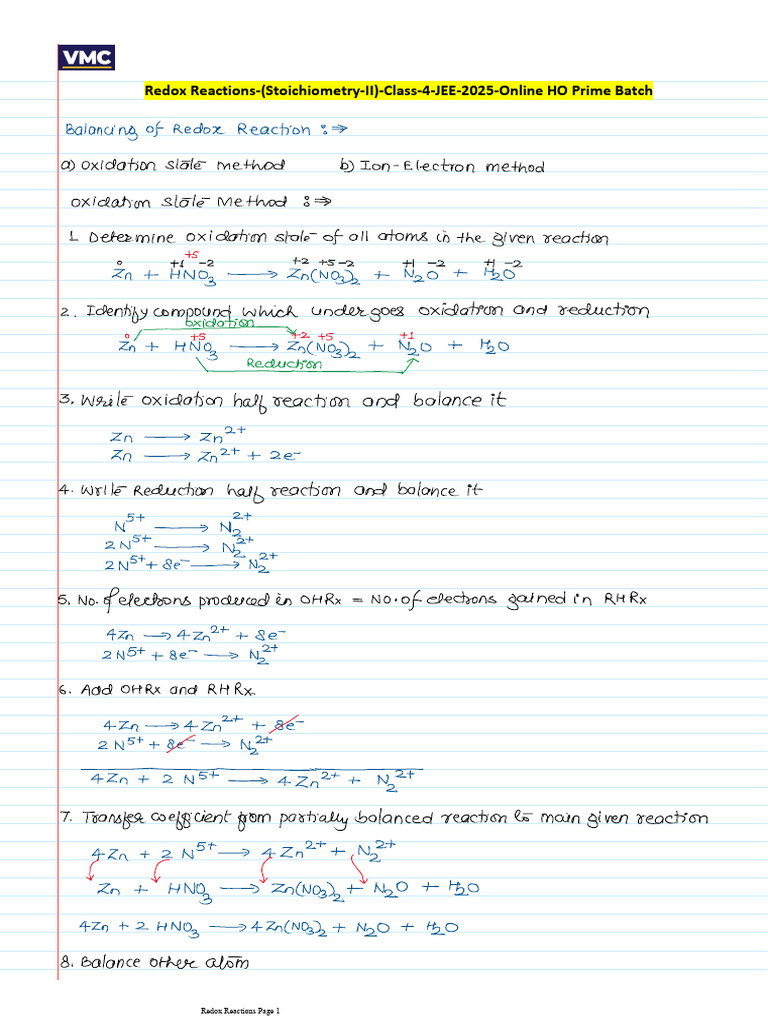 VMC
Redox Reactions-(Stoichiometry-II)-Class-4-JEE-2025-Online HO Prime Batch
Balancing of Redox Reaction :⇒
a) Oxidation state method b) Ion-Electron method
Oxidation State Method :⇒
1. Determine oxidation state of all atoms in the given reaction
0 +1 +5 -2 +2 +5 -2 +1 -2 +1 -2
Zn + HNO₃ ⟶ Zn(NO₃)₂ + N₂O + H₂O
2. Identify compound which undergoes oxidation and reduction
oxidation
0 +5 +2 +5 +1
Zn + HNO₃ ⟶ Zn(NO₃)₂ + N₂O + H₂O
Reduction
3. Write oxidation half reaction and balance it
Zn ⟶ Zn²⁺
Zn ⟶ Zn²⁺ + 2e⁻
4. Write Reduction half reaction and balance it
N⁵⁺ ⟶ N₂²⁺
2N⁵⁺ ⟶ N₂²⁺
2N⁵⁺ + 8e⁻ ⟶ N₂²⁺
5. No. of electrons produced in OHRx = No. of electrons gained in RHRx
4Zn ⟶ 4Zn²⁺ + 8e⁻
2N⁵⁺ + 8e⁻ ⟶ N₂²⁺
6. Add OHRx and RHRx.
4Zn ⟶ 4Zn²⁺ + 8e⁻
2N⁵⁺ + 8e⁻ ⟶ N₂²⁺
4Zn + 2N⁵⁺ ⟶ 4Zn²⁺ + N₂²⁺
7. Transfer coefficient from partially balanced reaction to main given reaction
4Zn + 2N⁵⁺ ⟶ 4Zn²⁺ + N₂²⁺
Zn + HNO₃ ⟶ Zn(NO₃)₂ + N₂O + H₂O
4Zn + 2HNO₃ ⟶ 4Zn(NO₃)₂ + N₂O + H₂O
8. Balance other atom
Redox Reactions Page 1